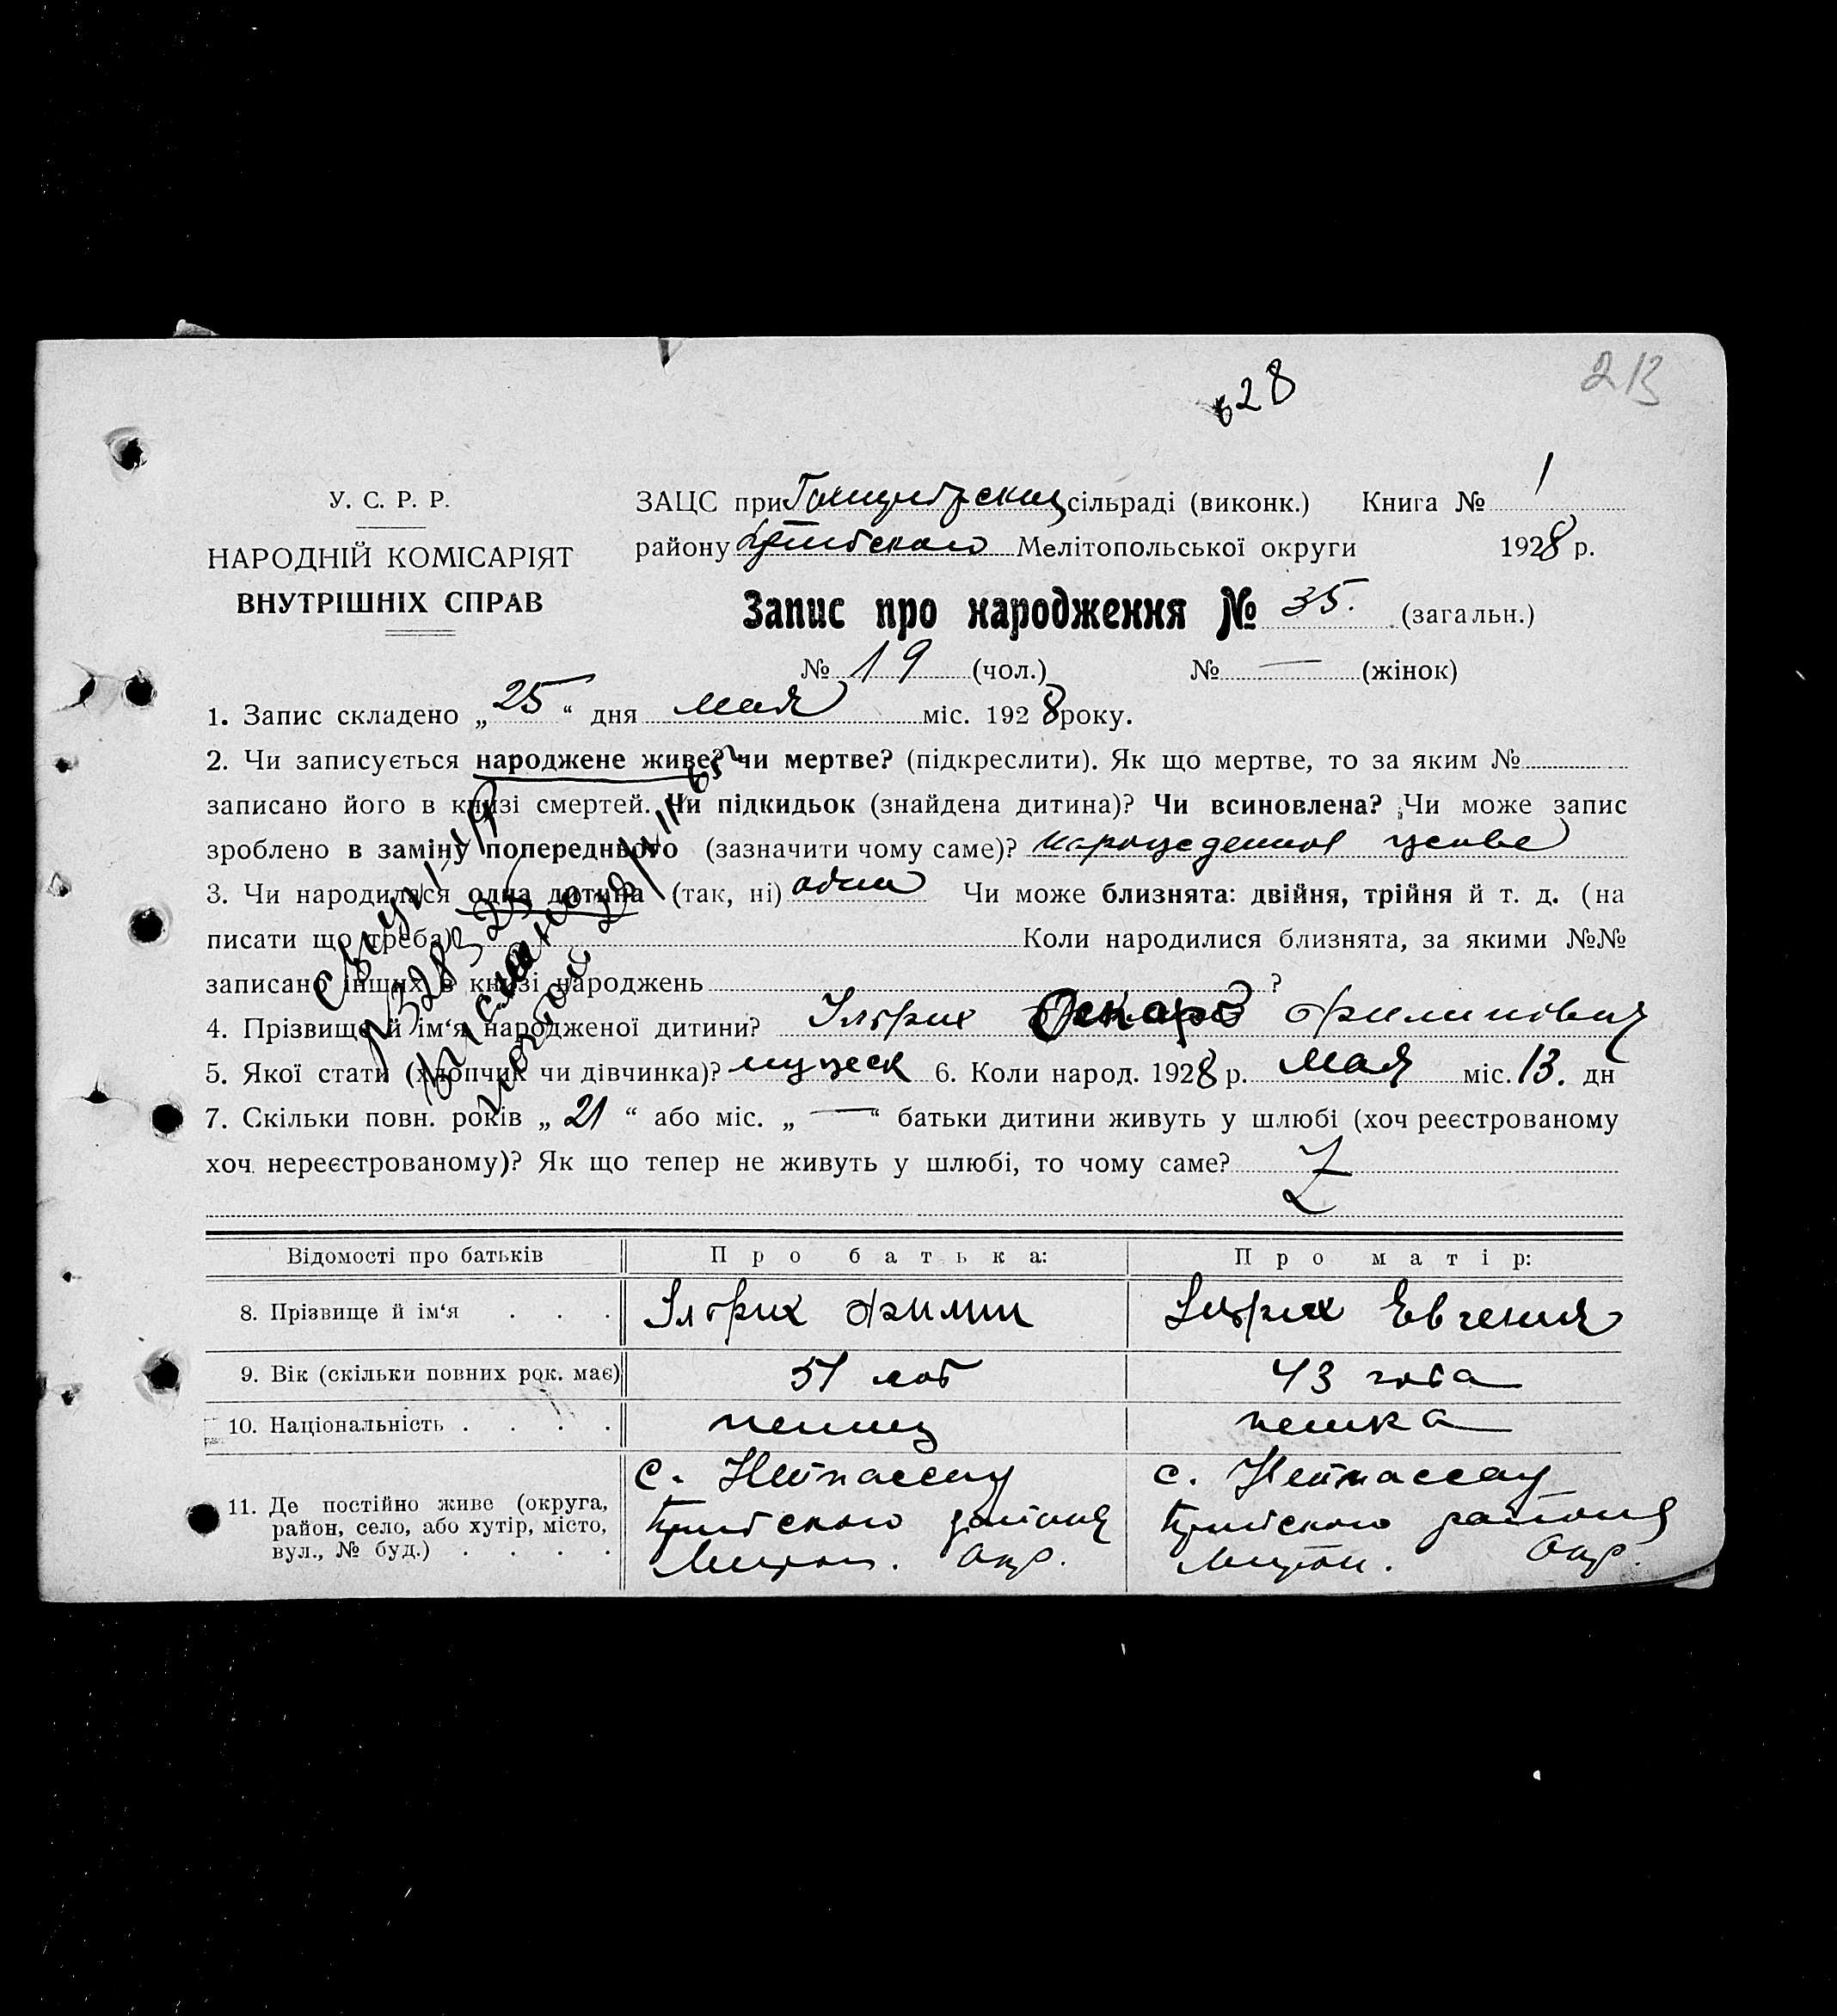 28
213
У. С. Р. Р.
ЗАЦС при сільраді (виконк.) Книга № 1
НАРОДНІЙ КОМІСАРІЯТ
району Мелітопольської округи 1928 р.
ВНУТРІШНІХ СПРАВ
Запис про народження № 35. (загальн.)
№ 19 (чол.) № — (жінок)
1. Запис складено „ 25 “ дня мая міс. 1928 року.
2. Чи записується народжене живе? чи мертве? (підкреслити). Як що мертве, то за яким №
записано його в книзі смертей. Чи підкидьок (знайдена дитина)? Чи всиновлена? Чи може запис
зроблено в заміну попереднього (зазначити чому саме)?
3. Чи народилася одна дитина (так, ні) одна Чи може близнята: двійня, трійня й т. д. (на
писати що треба) Коли народилися близнята, за якими №№
записано інших в книзі народжень ?
4. Прізвище й ім‘я народженої дитини? Ульрих Оскар Филипович
5. Якої стати (хлопчик чи дівчинка)? мужеск 6. Коли народ. 1928 р. мая міс. 13. дн
7. Скільки повн. років „ 21 “ або міс. „ — “ батьки дитини живуть у шлюбі (хоч реєстрованому
хоч нереєстрованому)? Як що тепер не живуть у шлюбі, то чому саме? Z
Відомості про батьків Про батька: Про матір:
8. Прізвище й ім‘я . . . Ульрих Филип Ульрих Евгения
9. Вік (скільки повних рок. має) 51 лет 43 года
10. Національність . . . . немец немка
11. Де постійно живе (округа, с. Нейнассау с. Нейнассау
район, село, або хутір, місто, района района
вул., № буд.) . . . . Окр. Окр.